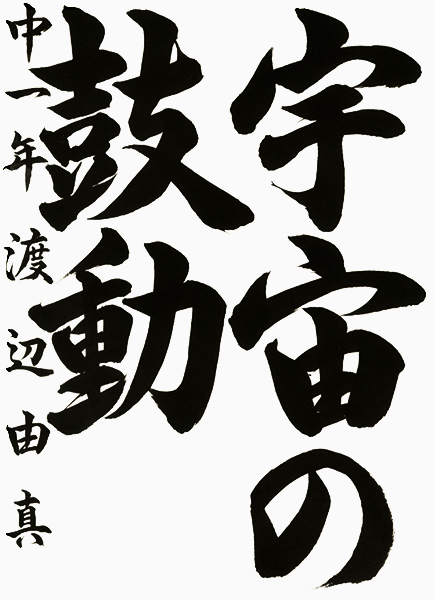 宇宙の
鼓動
中一年 渡辺由真